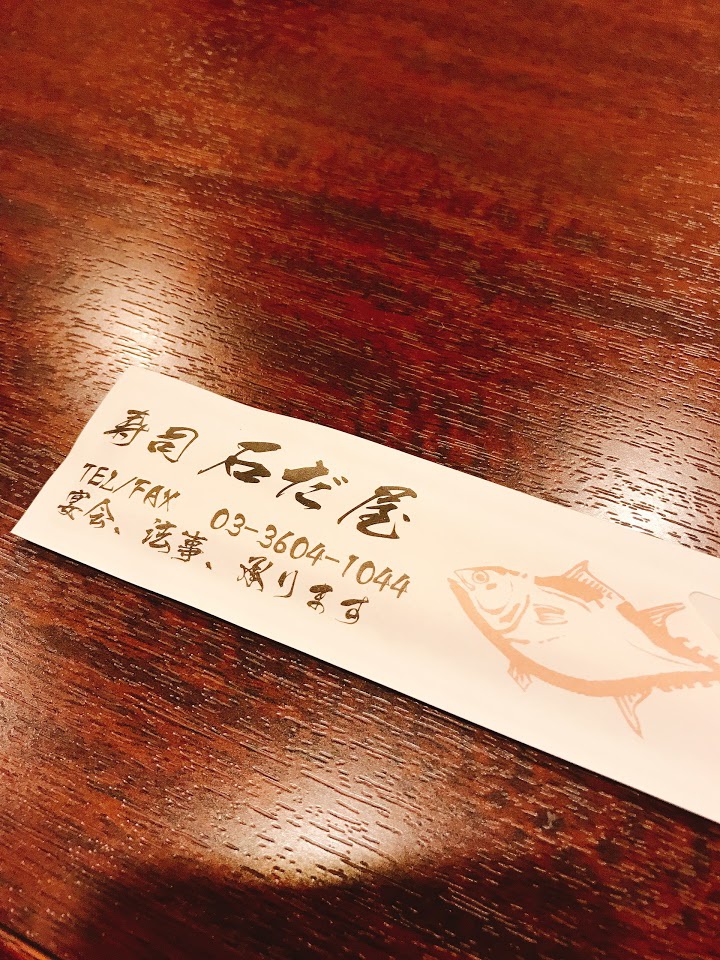 寿司 石だ屋
TEL/FAX 03-3604-1044
宴会、法事、承ります